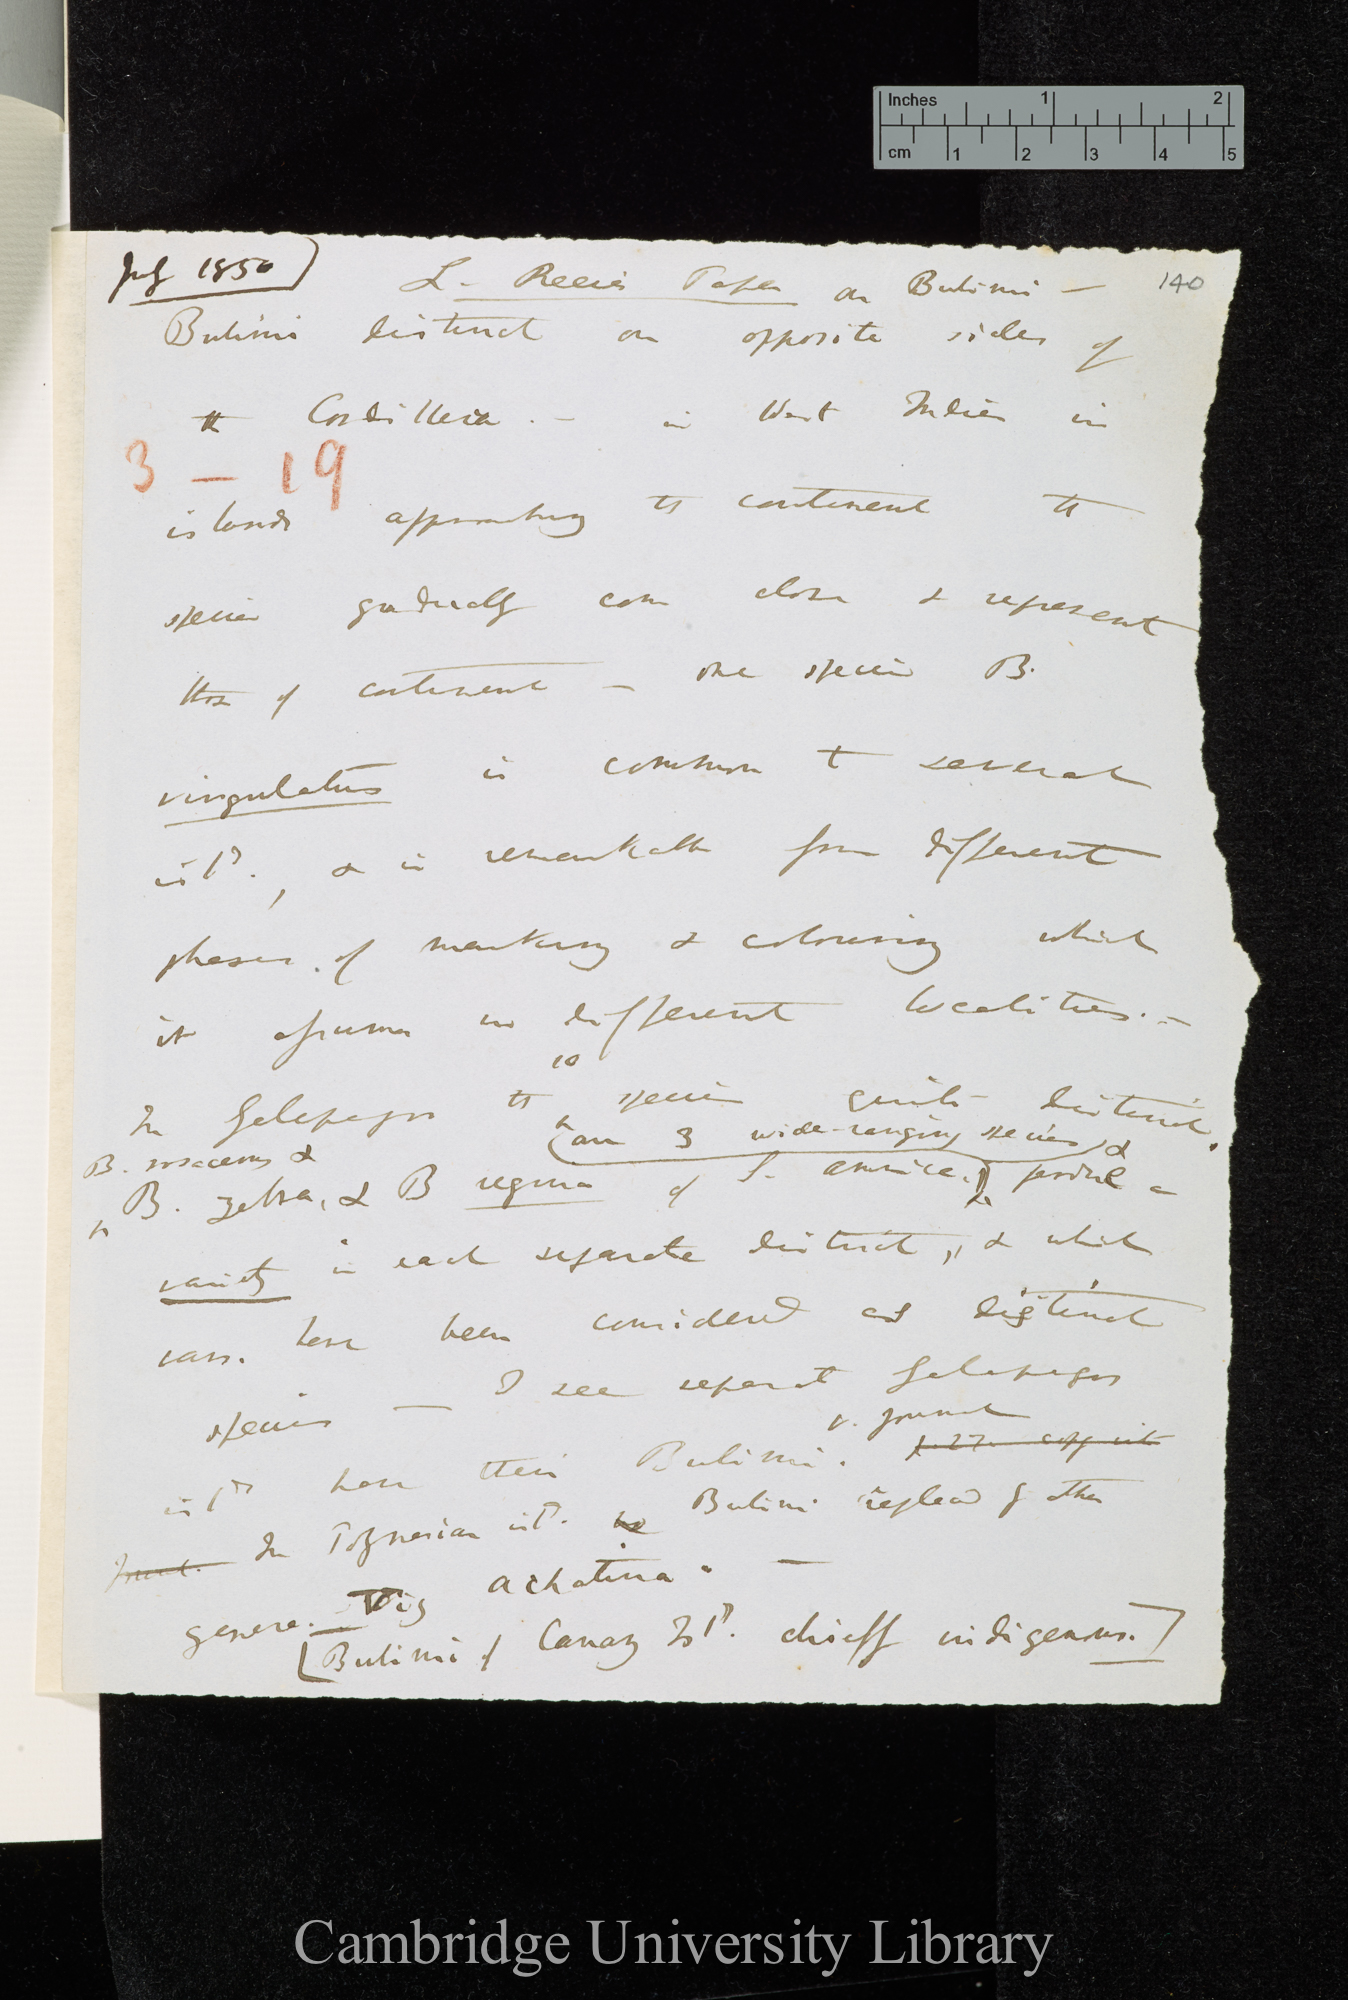 Inches 1 2
cm 1 2 3 4 5
July 1850) L. Reeve's Paper on Bulimi — 140
Bulimi distinct on opposite sides of
the Cordillera. — in West Indies in
3 — 19
islands approaching the continent the
species gradually come close & represent
those of continent — one species B.
virgulatus is common to several
isld., & is remarkable from different
phases of marking & colouring which
it assumes in different localities. —
10
In Galapagos the species quite distinct.
(are 3 wide-ranging species) &
B. rosaceus &
B. zebra, & B regina of S. America, produce a
variety in each separate district, & which
vars. have been considered as distinct
species — I see separate Galapagos
v. Journal
islds have their Bulimi.
In Polynesian isld. Bulimi replaced by other
genera. Viz Achatina. —
[Bulimi of Canary Isld. chiefly indigenous.]
Cambridge University Library